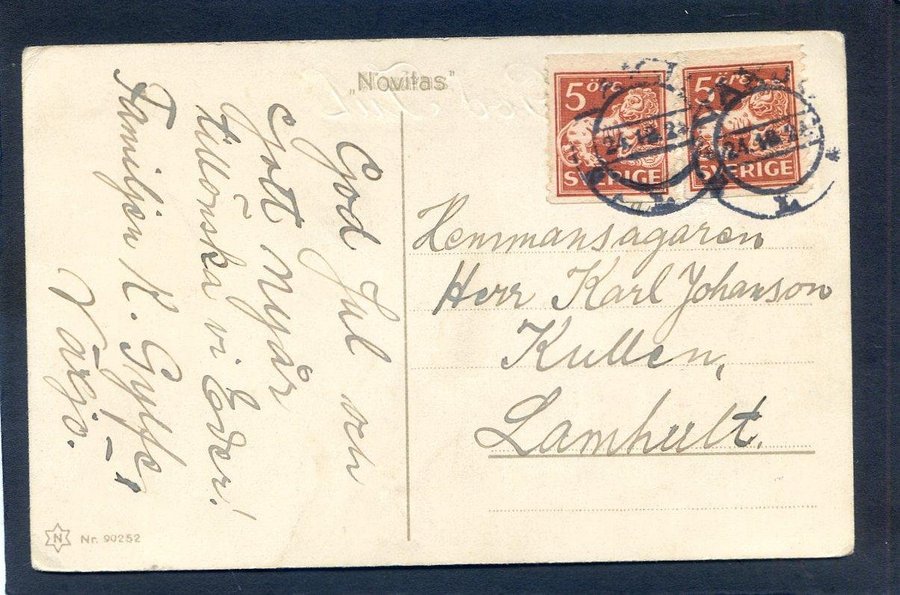 "Novitas"
God Jul och
gott nyår
tillönska vi Eder!
Familjen K.
Växjö.
5 öre
SVERIGE
5 öre
SVERIGE
24.12.2
24.12.2
Hemmansägaren
Herr Karl Johanson
Kullen,
Lamhult.
N Nr. 90252